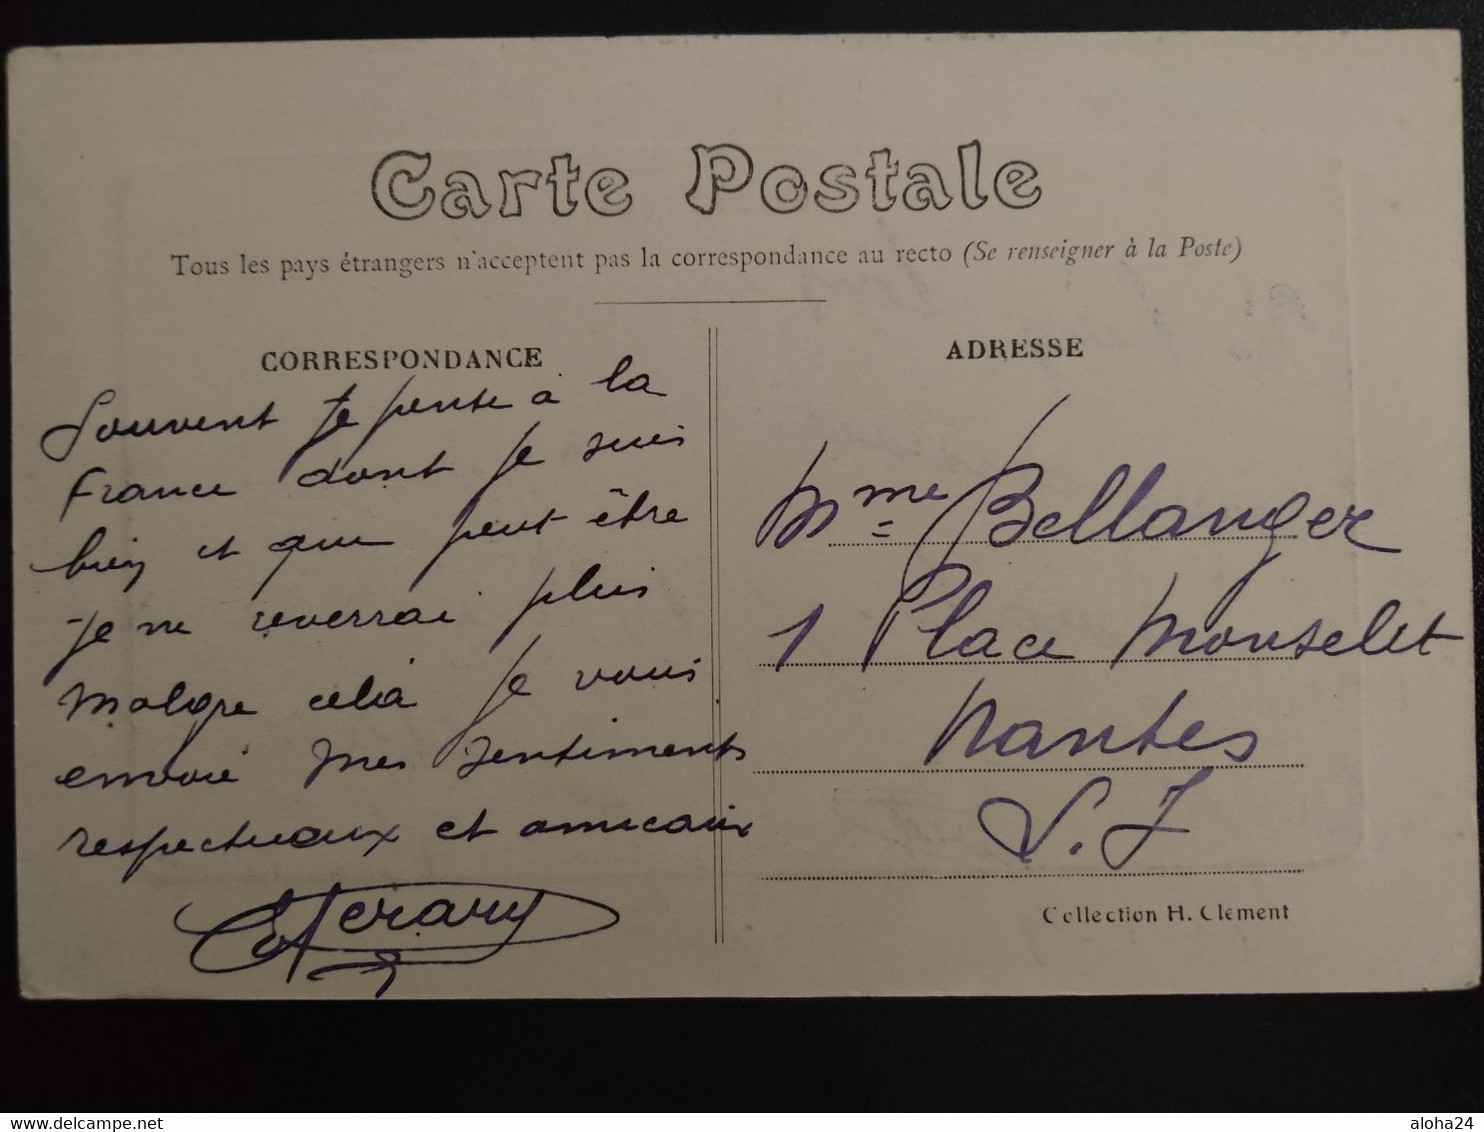 Carte Postale
Tous les pays étrangers n'acceptent pas la correspondance au recto (Se renseigner à la Poste)
CORRESPONDANCE
Souvent je pense à la
France dont je suis
bien et que peut être
je ne reverrai plus
malgre celà je vous
envoie mes sentiments
respectueux et amicaux
ADRESSE
Mme Bellanger
1 Place Monselet
Nantes
S. I
Collection H. Clement
delcampe.net
aloha24